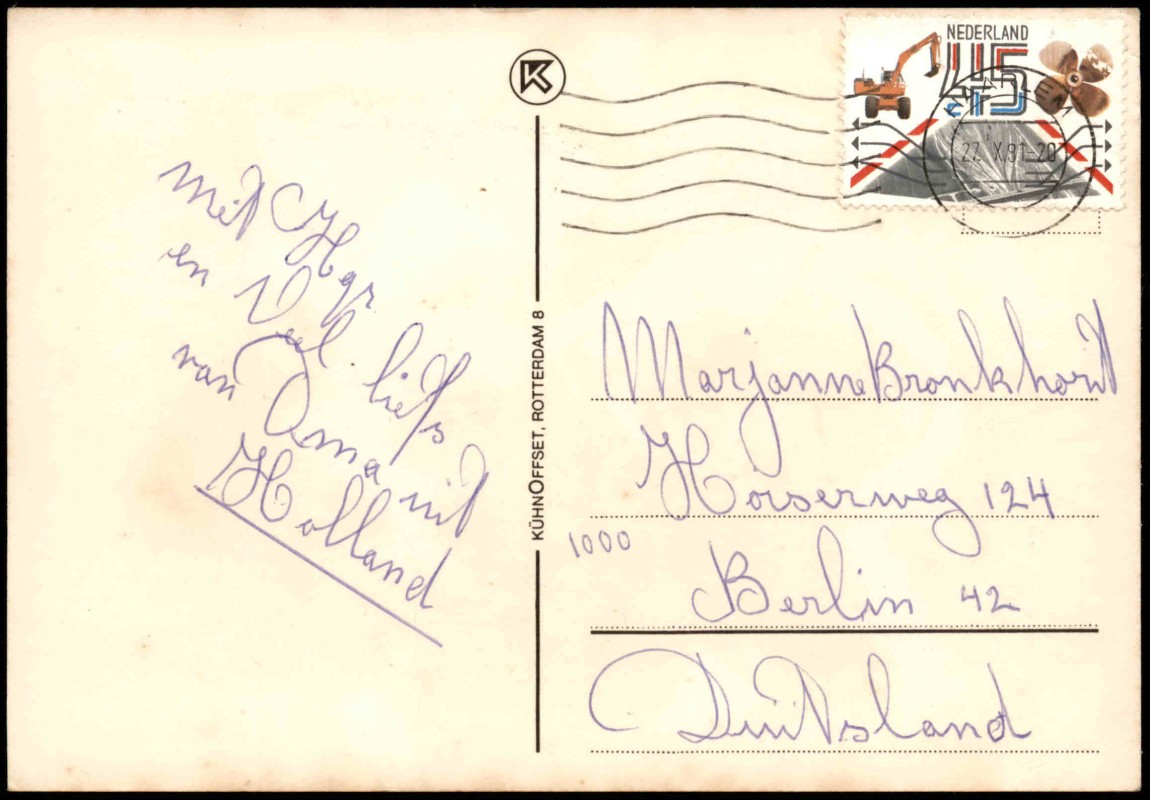 NEDERLAND
45
27. X.81-20
met Hgr
en Veel liefs
van Oma uit
Holland
KÜHNOFFSET, ROTTERDAM 8
Marjanne Bronkhorst
1000
Berlin 42
Duitsland
124